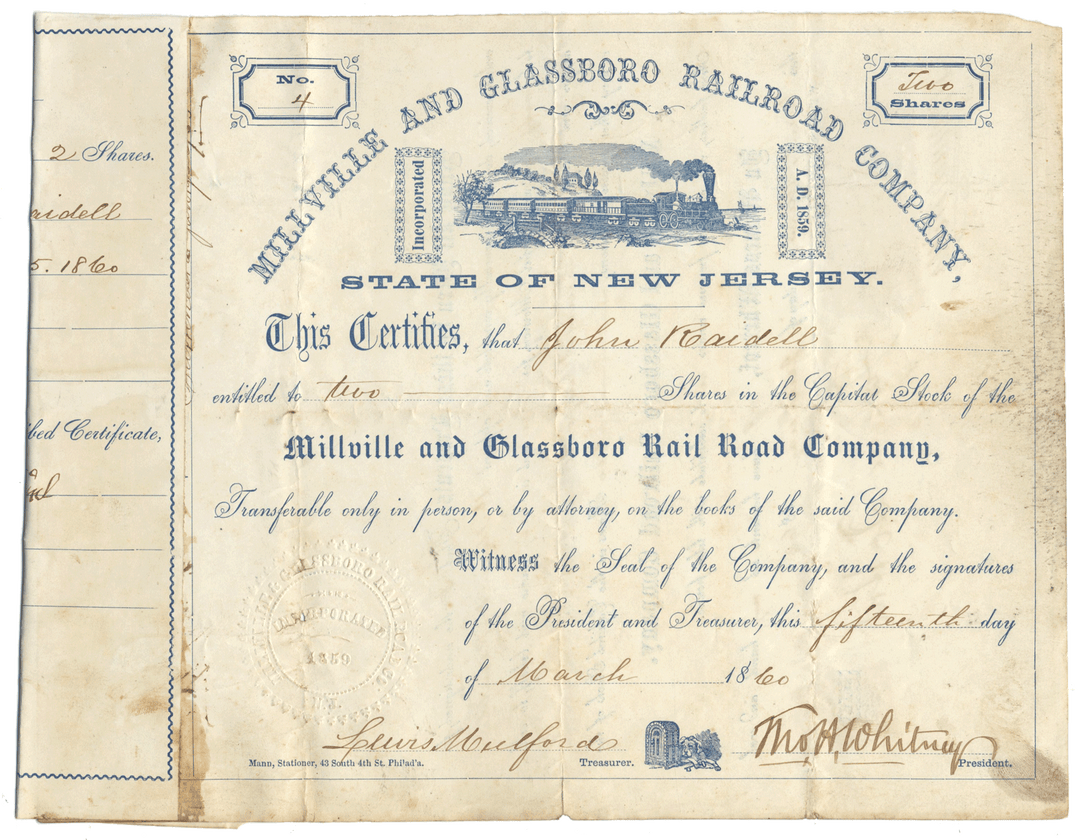 2 Shares.
aidell
5. 1860
bed Certificate,
No.
4
MILLVILLE AND GLASSBORO RAILROAD COMPANY,
Two
Shares
Incorporated
A. D. 1859.
STATE OF NEW JERSEY.
This Certifies, that John Raidell
entitled to two Shares in the Capital Stock of the
Millville and Glassboro Rail Road Company,
Transferable only in person, or by attorney, on the books of the said Company.
Witness the Seal of the Company, and the signatures
of the President and Treasurer, this fifteenth day
of March 1860
INCORPORATED
1859
N.J.
Lewis Mulford
Tho H. Whitney
Mann, Stationer, 43 South 4th St. Philad'a.
Treasurer.
President.